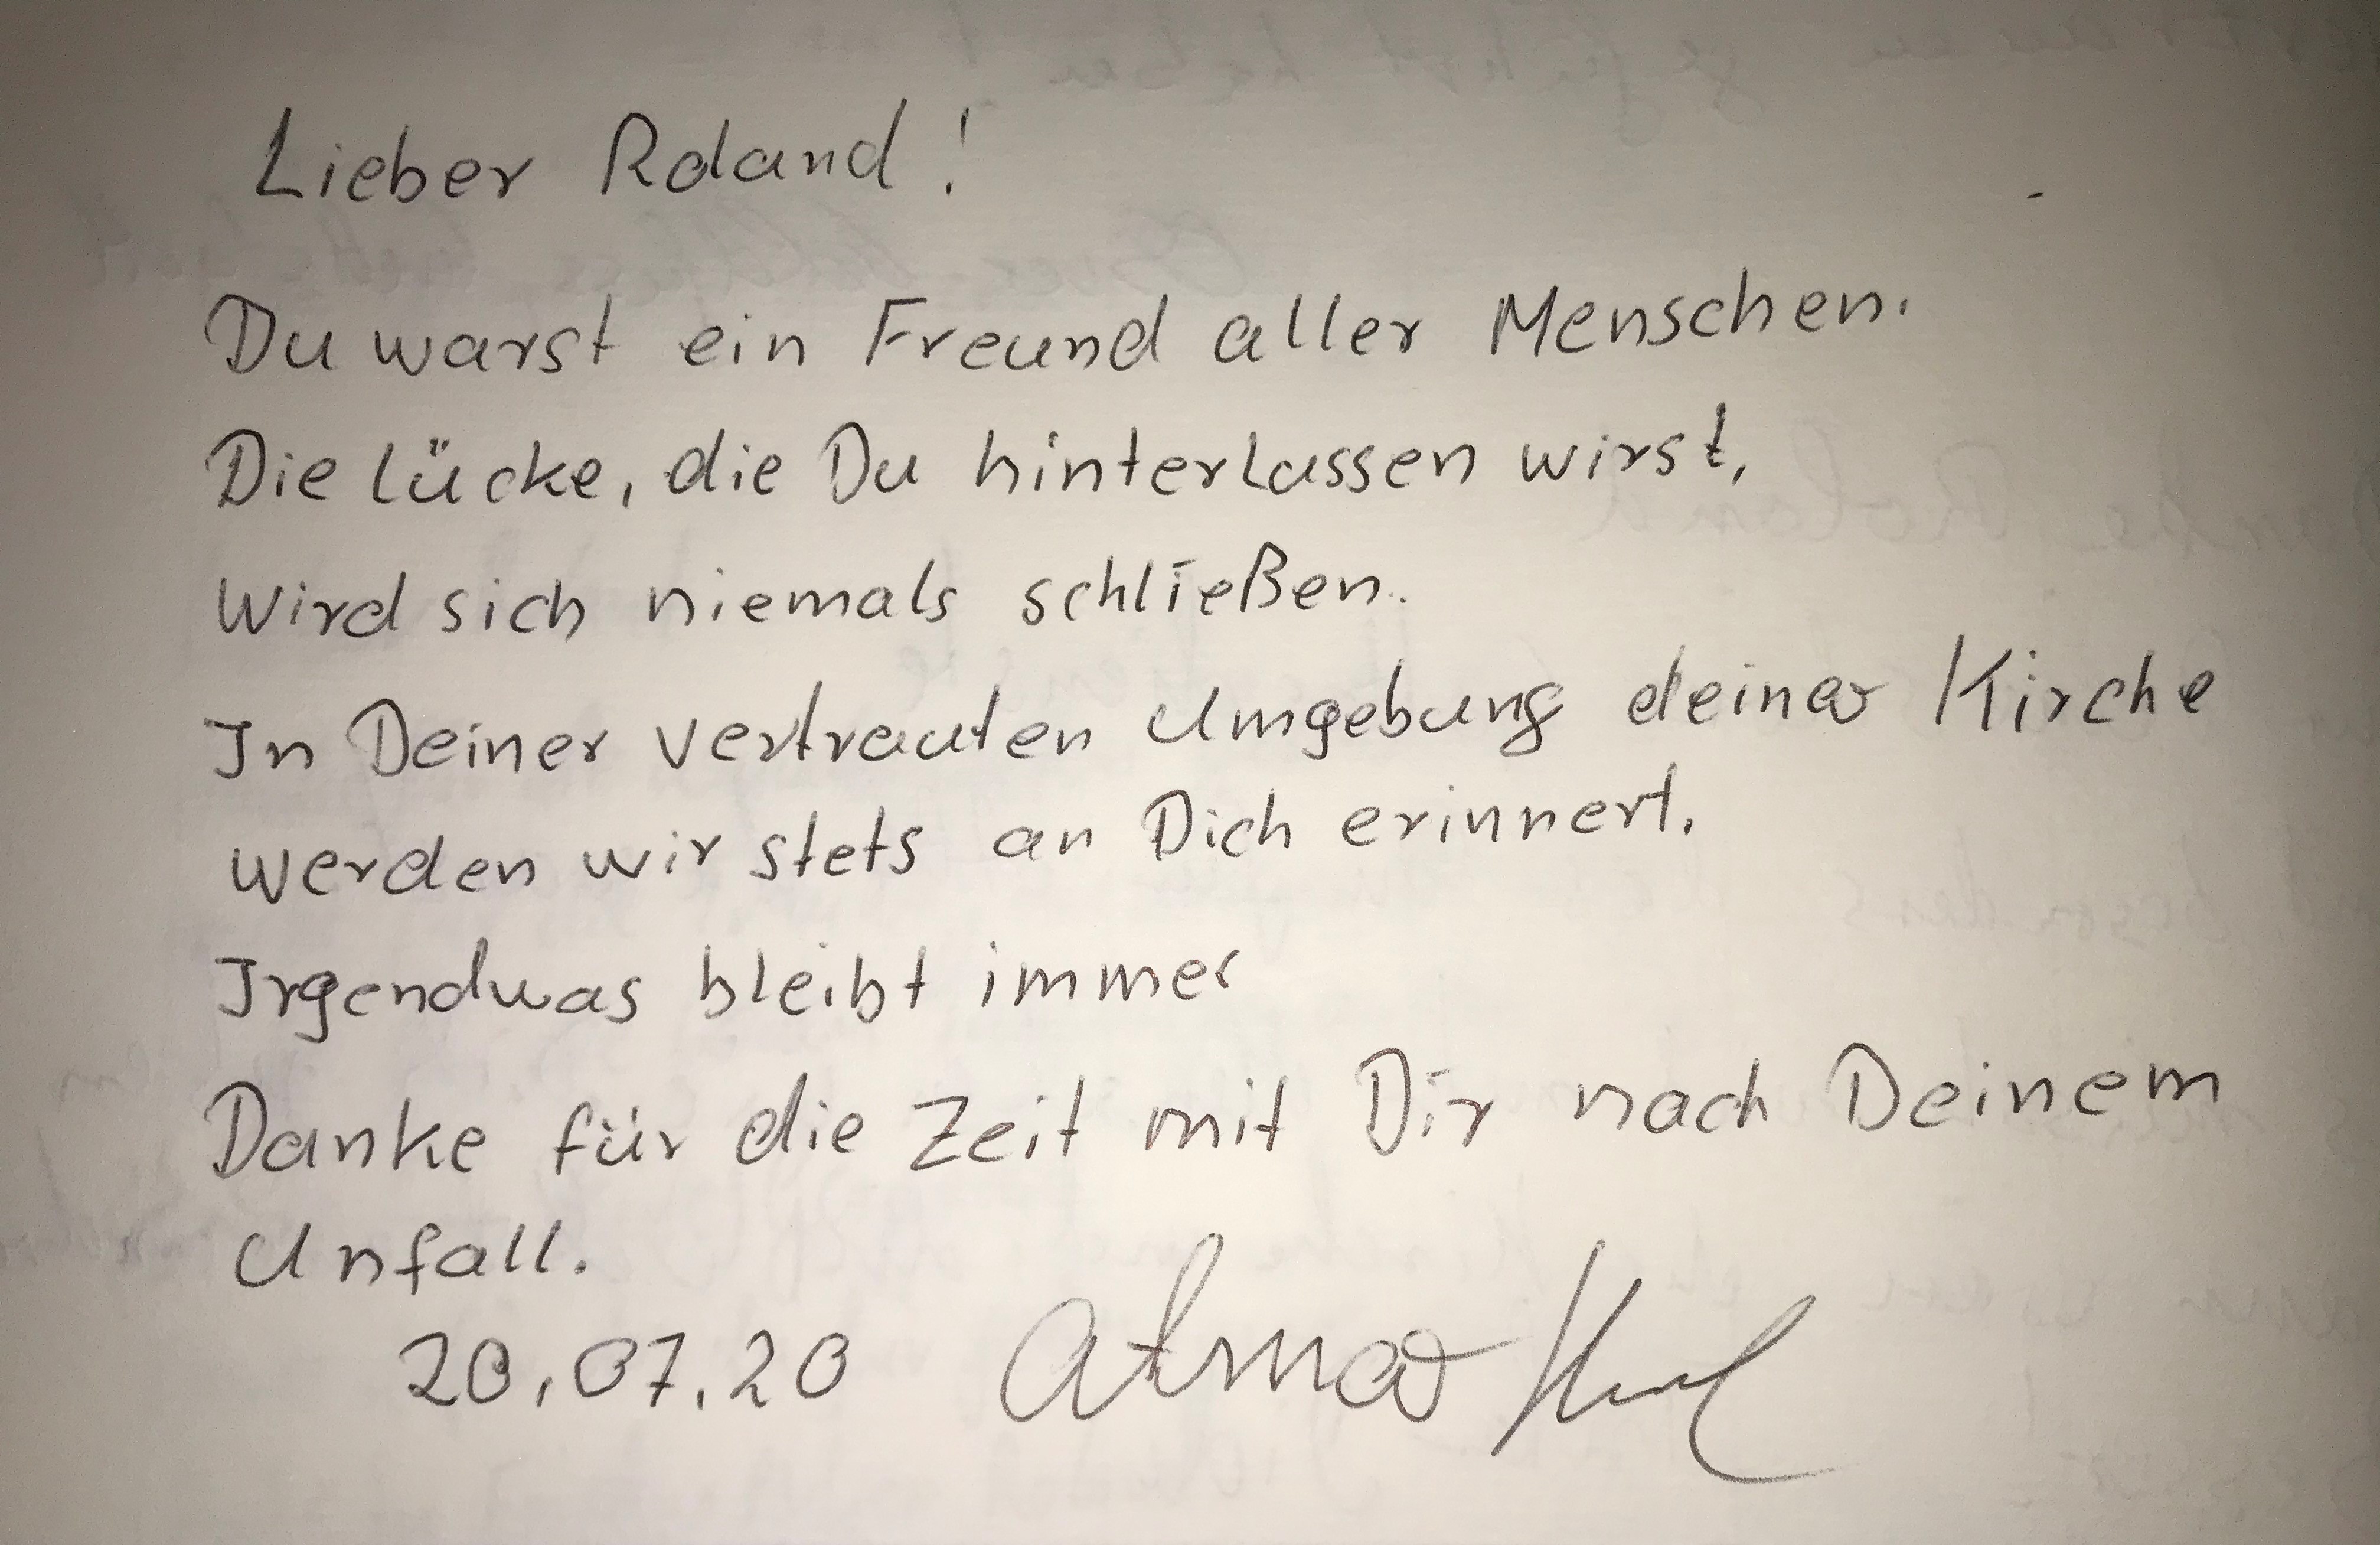 Lieber Roland!
Du warst ein Freund aller Menschen.
Die Lücke, die Du hinterlassen wirst,
Wird sich niemals schließen.
In Deiner vertrauten Umgebung deiner Kirche
werden wir stets an Dich erinnert.
Irgendwas bleibt immer
Danke für die Zeit mit Dir nach Deinem
Unfall.
20.07.20